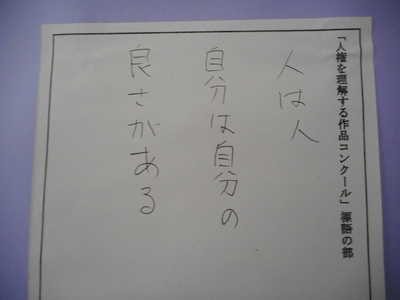 「人権を理解する作品コンクール」標語の部
人は人
自分は自分の
良さがある